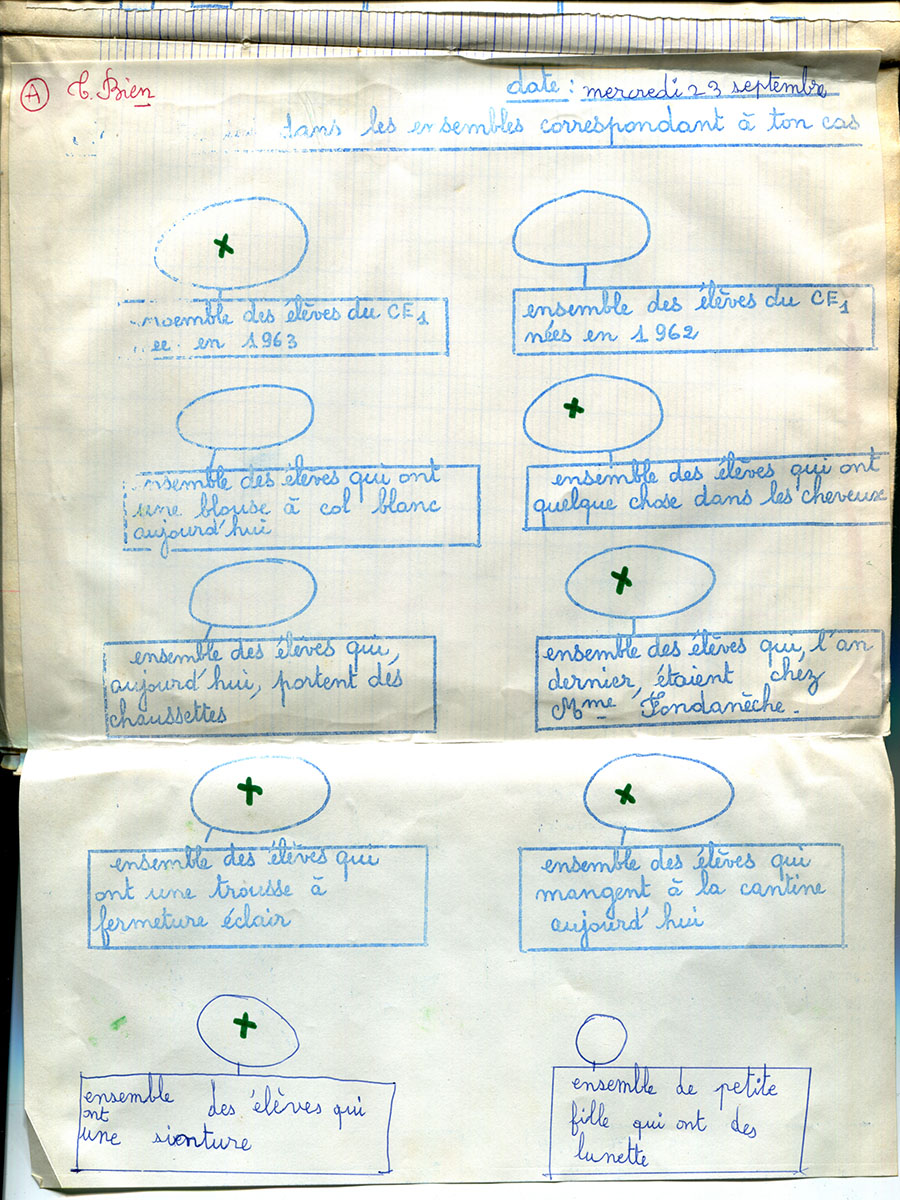 A T. Bien
date : mercredi 23 septembre
dans les ensembles correspondant à ton cas
ensemble des élèves du CE1
ée en 1963
ensemble des élèves du CE1
nées en 1962
ensemble des élèves qui ont
une blouse à col blanc
aujourd'hui
ensemble des élèves qui ont
quelque chose dans les cheveux
ensemble des élèves qui,
aujourd'hui, portent des
chaussettes
ensemble des élèves qui, l'an
dernier, étaient chez
Mme Fondanèche.
ensemble des élèves qui
ont une trousse à
fermeture éclair
ensemble des élèves qui
mangent à la cantine
aujourd'hui
ensemble des élèves qui
ont
une sienture
ensemble de petite
fille qui ont des
lunette